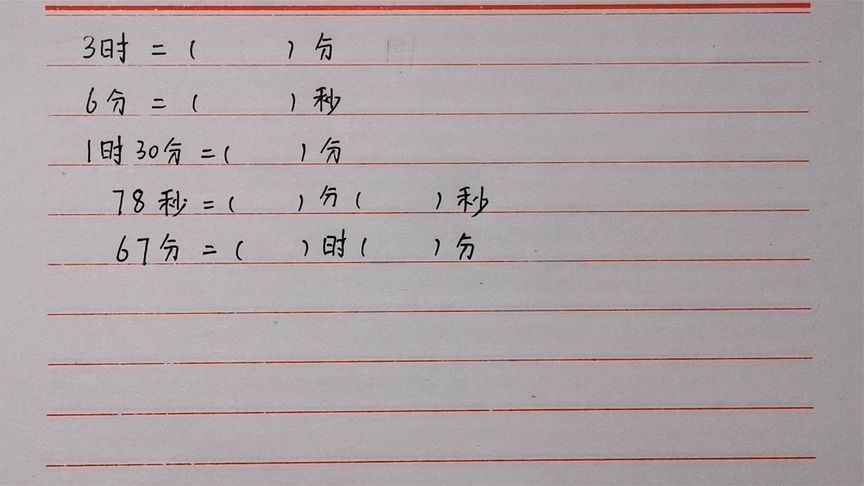 3时 = (  ) 分
6分 = (  ) 秒
1时30分 = (  ) 分
78秒 = (  ) 分 (  ) 秒
67分 = (  ) 时 (  ) 分